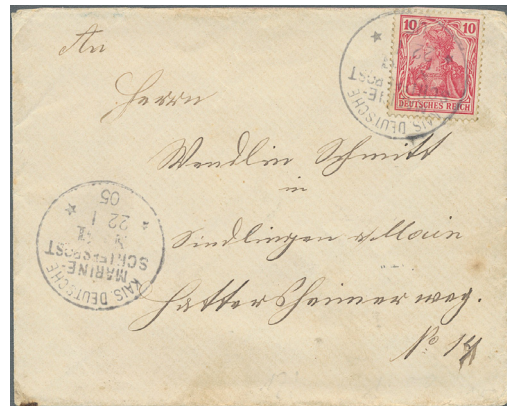 An
Herrn
Wendlin Schmitt
in
Sindlingen a/Main
Hattersheimerweg.
No 14
10 10
DEUTSCHES REICH
KAIS. DEUTSCHE
MARINE
SCHIFFSPOST
22 1
05
KAIS. DEUTSCHE